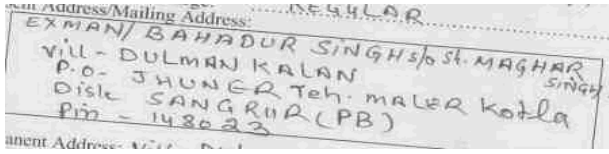 REGULAR
ent Address/Mailing Address:
EXMAN/ BAHADUR SINGH s/o Sh. MAGHAR SINGH
Vill - DULMAN KALAN
P.O- JHUNER Teh. MALER Kotla
Distt SANGRUR (PB)
Pin - 148023
anent Address: Vill-